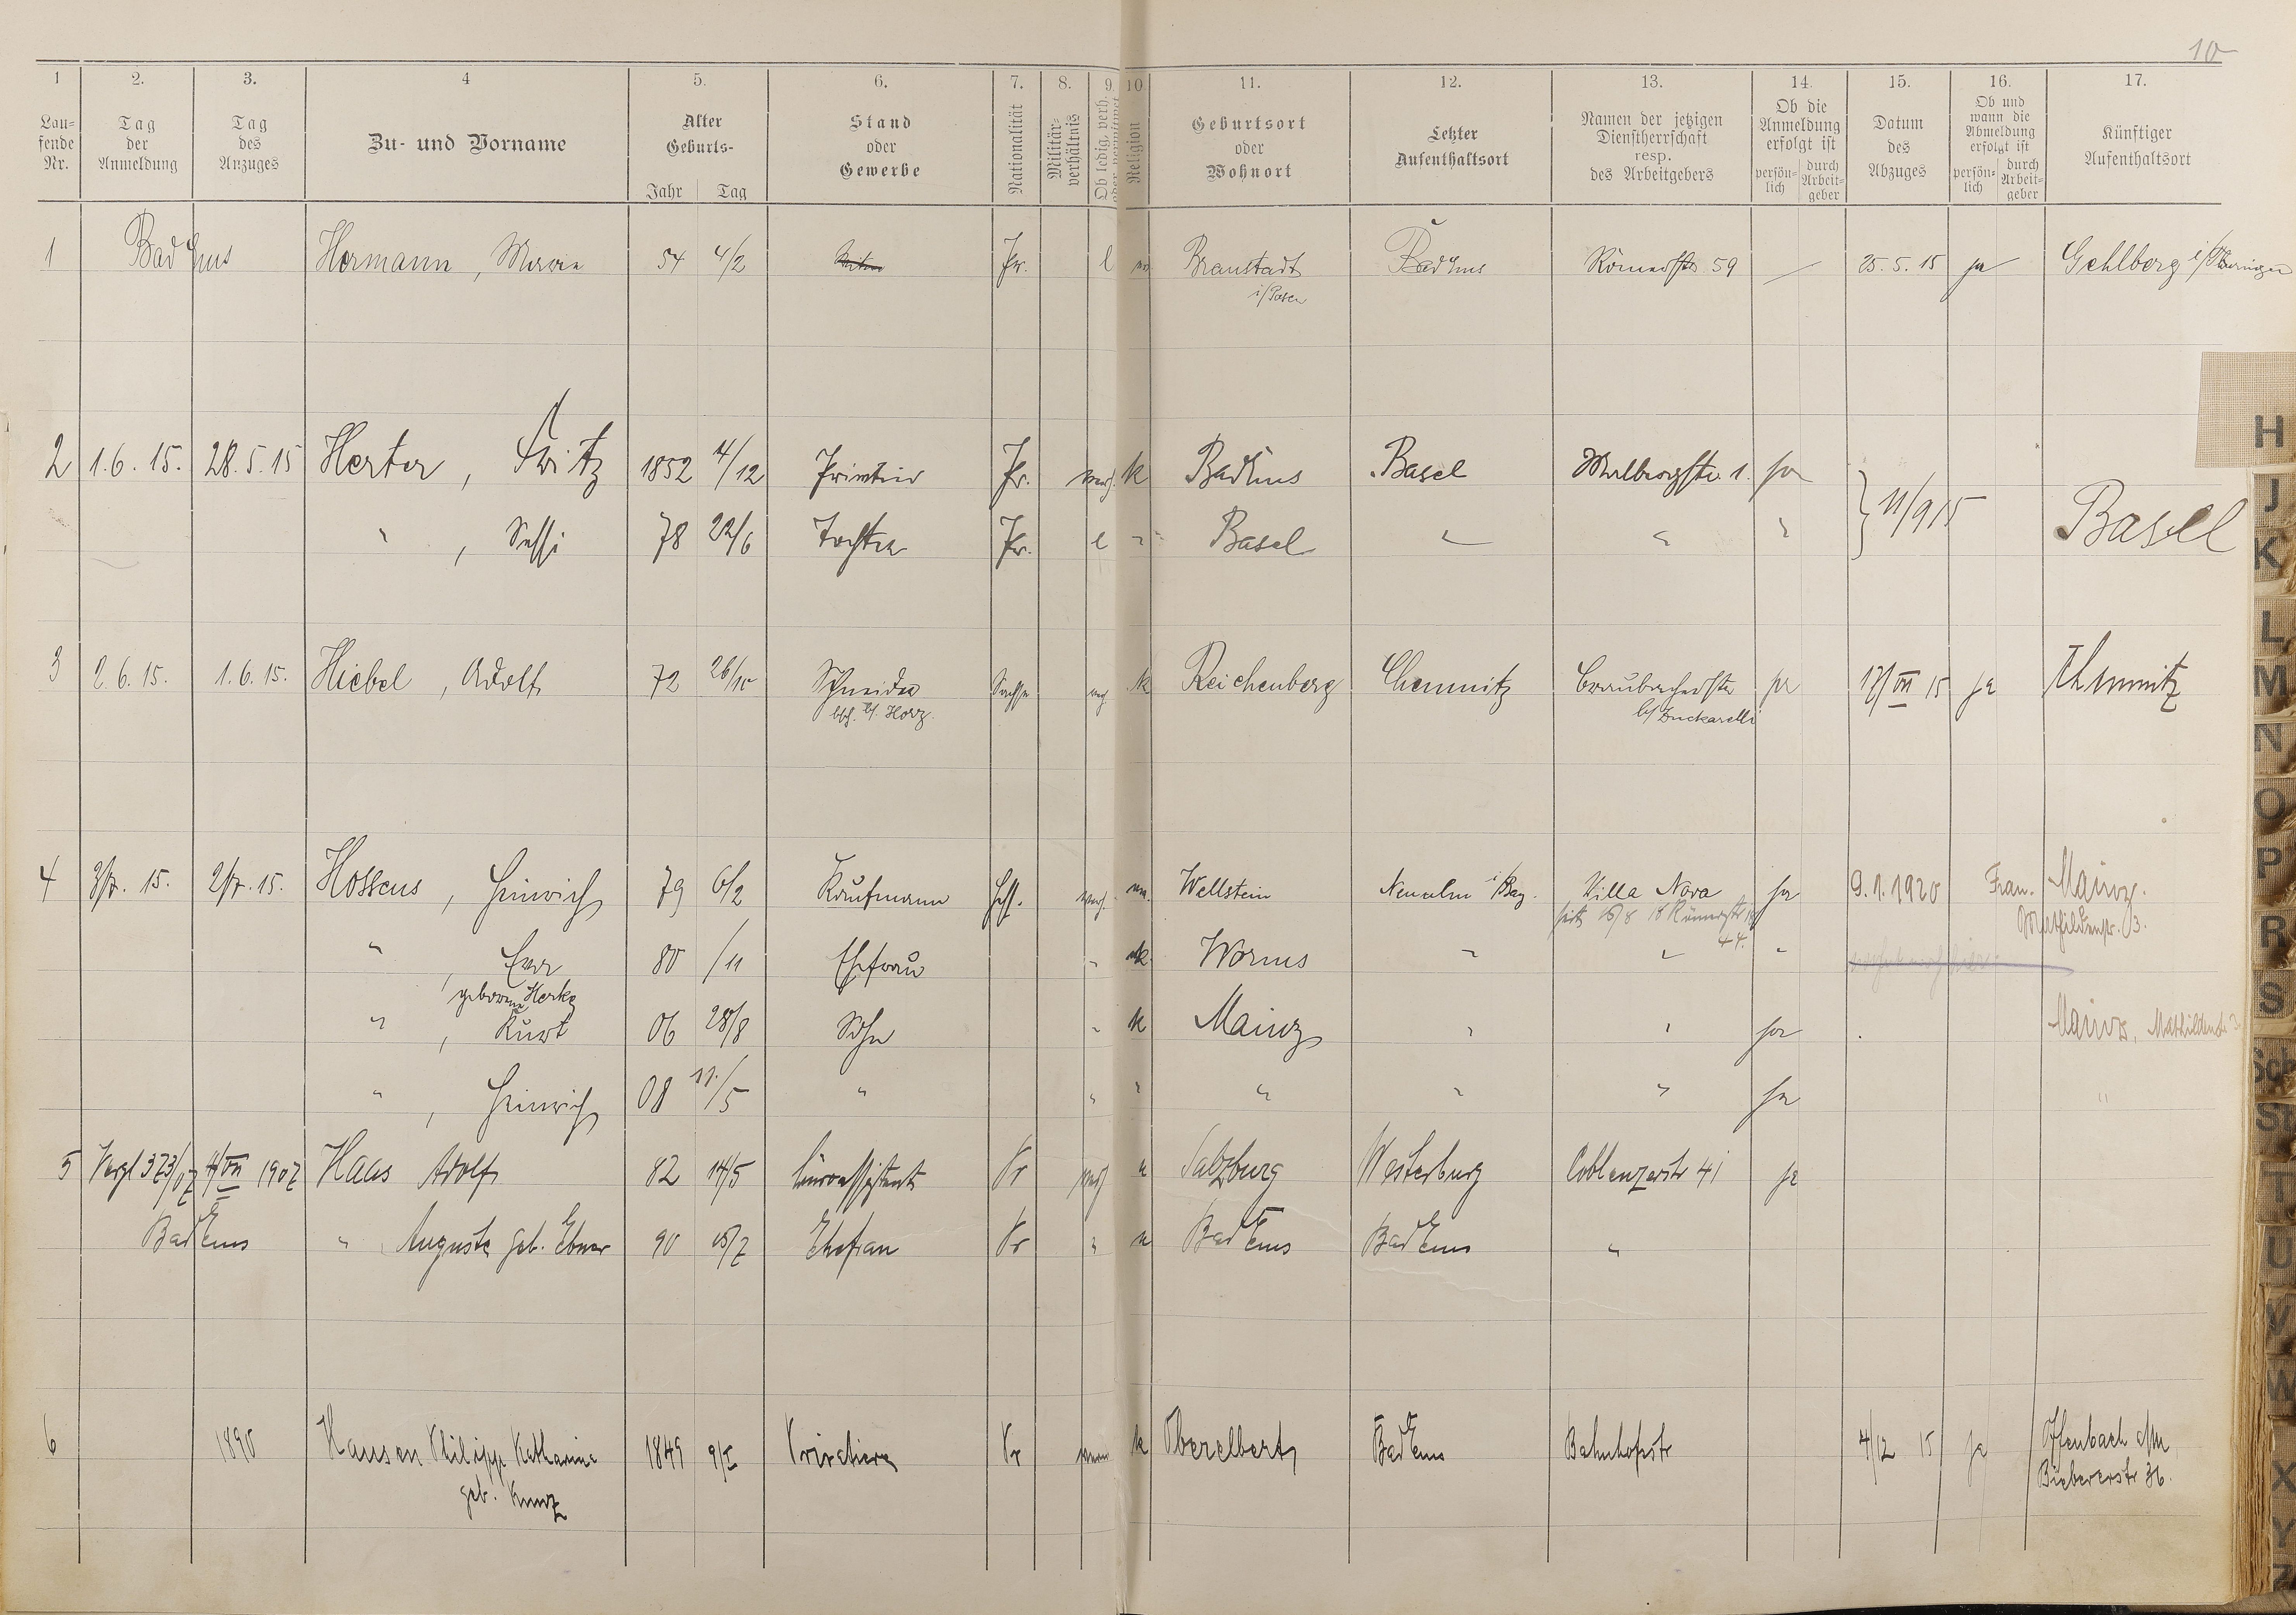 10
1 2. 3. 4 5. 6. 7. 8. 9. 10. 11. 12. 13. 14. 15. 16. 17.
Lau-
fende
Nr.
Tag
der
Anmeldung
Tag
des
Anzuges
Zu- und Vorname
Alter
Geburts-
Jahr Tag
Stand
oder
Gewerbe
Nationalität
Militär-
verhältnis
Ob ledig, verh.
oder verwitwet
Religion
Geburtsort
oder
Wohnort
Letzter
Aufenthaltsort
Namen der jetzigen
Dienstherrschaft
resp.
des Arbeitgebers
Ob die
Anmeldung
erfolgt ist
persön-
lich
durch
Arbeit-
geber
Datum
des
Abzuges
Ob und
wann die
Abmeldung
erfolgt ist
persön-
lich
durch
Arbeit-
geber
Künftiger
Aufenthaltsort
1 Bad Ems Hermann, 54 4/2 Pr. l Braustadt Bad Ems Römerstr 59 25.5.15 ja Gehlberg i/Thüringen
i/Posen
2 1.6.15. 28.5.15 Herter, Fritz 1852 4/12 Pr. verh. k Bad Ems Basel Malbergstr. 1. ja
" , 78 22/6 Tochter Pr. l " Basel " " " } 11/9 15 Basel
3 2.6.15. 1.6.15. Hiebel, Adolf 72 26/10 Schneider k Reichenberg Chemnitz Braubacherstr ja 17/VII 15 ja Chemnitz
bsch. b/. Herz. b/ Zuckarelli
4 3/7. 15. 2/7. 15. Hossens, Heinrich 79 6/2 Kaufmann Hess. verh. Wellstein Neuulm i/Bay. Villa Nova ja 9.1.1920 Fran. Mainz.
Römerstr Mathildenstr. 3.
44.
" , Eva 80 /11 Ehefrau " k Worms " " "
geborene Herke
" , Kurt 06 28/8 Sohn " k Mainz " " ja Mainz, Mathildenstr 3
" , Heinrich 08 11./5 " " " " " " ja "
5 Vergl 373/07 4/VII 1907 Haas Adolf 82 14/5 Büroassistent Pr verh Salzburg Westerburg Coblenzerstr 41 ja
Bad Ems " Auguste geb. Ebner 90 Ehefrau Pr " Bad Ems Bad Ems "
6 1890 Hansen Philipp Katharina 1849 Privatiere Pr k Oberelbert Bad Ems Bahnhofstr 4/12 15 ja Offenbach a/M
geb. Kunz Biebererstr 36.
H
J
K
L
M
N
O
P
R
S
Sch
St
T
U
V
W
X
Y
Z